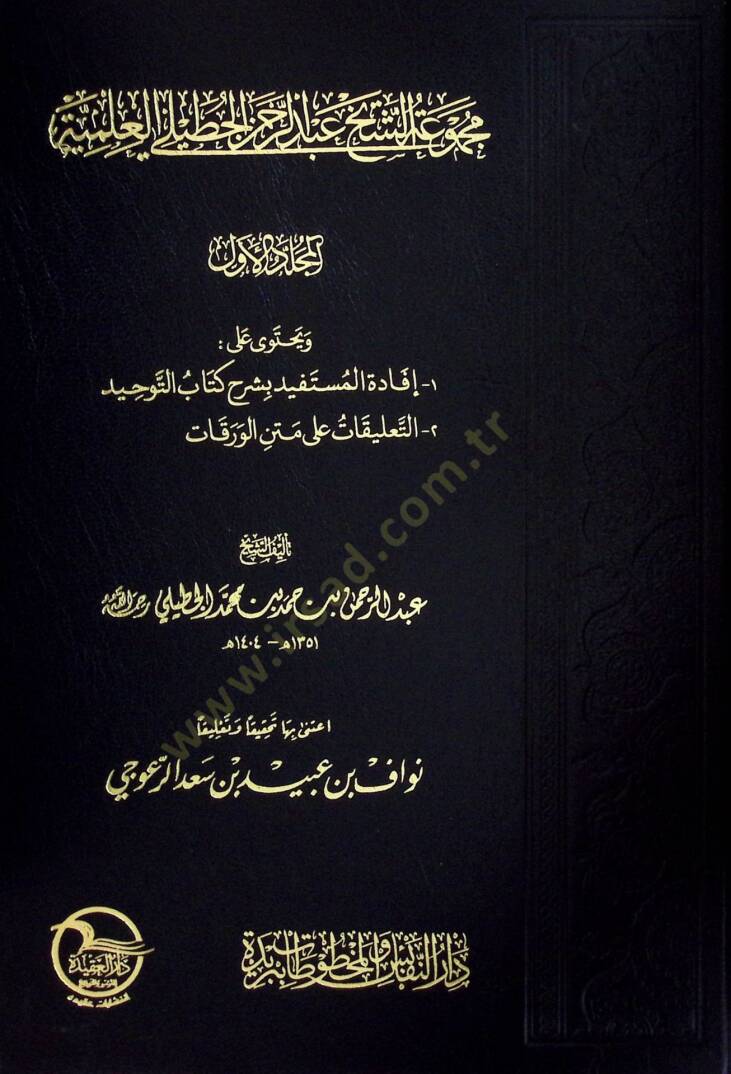 مجموعة الشيخ عبد الرحمن الجطيلي العلمية
المجلد الأول
ويحتوى على :
١- إفادة المستفيد بشرح كتاب التوحيد
٢- التعليقات على متن الورقات
تأليف الشيخ
عبد الرحمن بن حمد بن محمد الجطيلي رحمه الله
١٣٥١هـ - ١٤٠٤هـ
اعتنى بها تحقيقاً وتعليقاً
نواف بن عبيد بن سعد الرعوجي
دار النفائس والمخطوطات ببريدة
دار العقيدة
www.irsad.com.tr